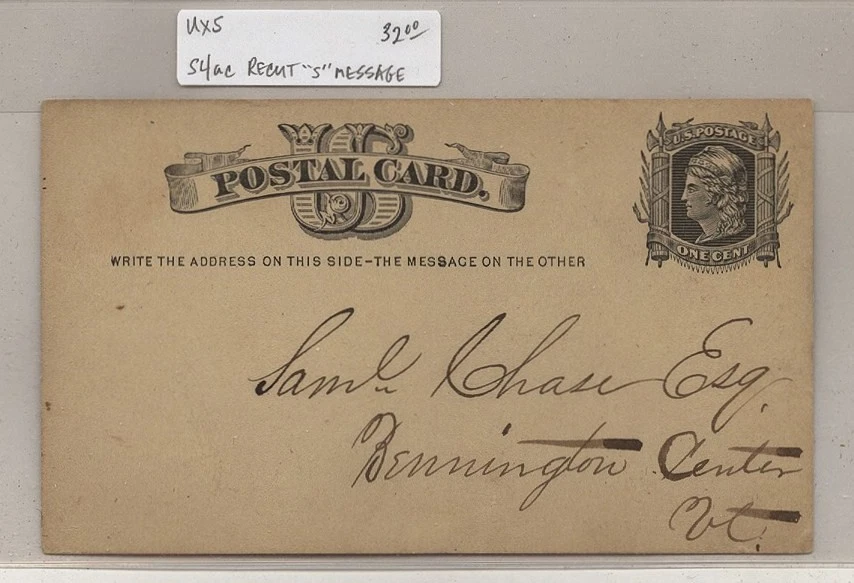 UX5 32⁰⁰
S4ac RECUT "S" MESSAGE
US
POSTAL CARD.
U.S. POSTAGE
ONE CENT
WRITE THE ADDRESS ON THIS SIDE–THE MESSAGE ON THE OTHER
Saml. Chase Esq.
Bennington Center
Vt.